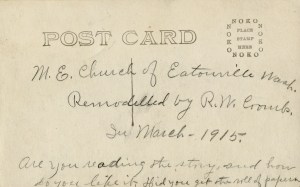 POST CARD
NOKO
NOKO
PLACE
STAMP
HERE
NOKO
NOKO
M. E. Church of Eatonville Wash.
Remodelled by R. W. Coomb.
In March - 1915.
Are you reading the story, and how
do you like it Did you get the roll of papers